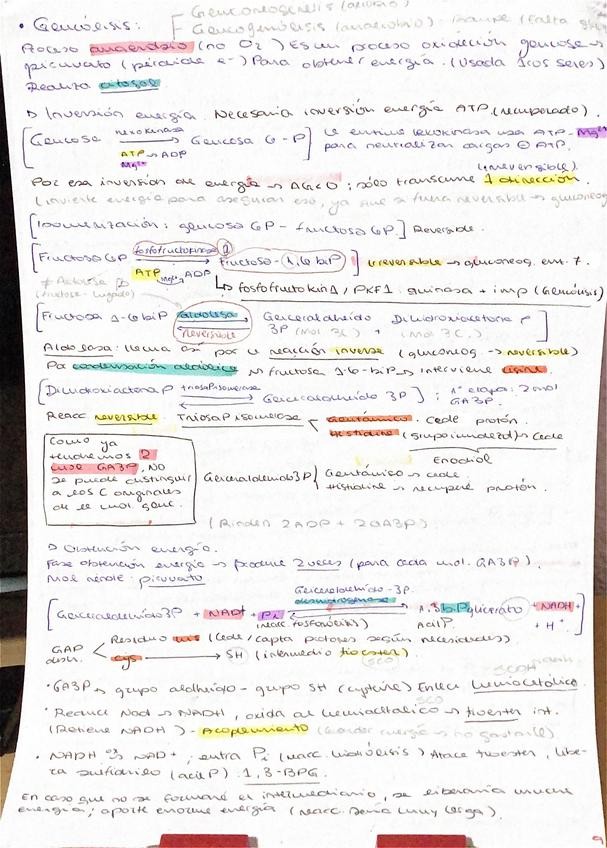 Gluconeogénesis (aerobio)
• Glucólisis: Glucogenólisis (anaerobio)
Proceso anaerobio (no O2) Es un proceso oxidación glucosa →
piruvato (pérdida e-) Para obtener energía. (Usada todos seres)
Realiza citosol
▷ Inversión energía. Necesaria inversión energía ATP (recuperado).
[Glucosa hexokinasa → Glucosa 6-P] La enzima hexokinasa usa ATP-Mg2+
ATP → ADP para neutralizar cargas ⊖ ATP.
Mg2+
(irreversible).
Por esa inversión de energía → ΔG<0; sólo transcurre 1 dirección.
(invierte energía para asegurar eso, ya que si fuera reversible → gluconeog
[Isomerización: glucosa 6P - fructosa 6P] Reversible.
[Fructosa 6P fosfofructokinasa 1 → fructosa-1,6 biP] Irreversible → gluconeog.
ATP Mg2+ ADP
↳ fosfofructokin 1 / PKF1: quinasa + imp (Glucólisis)
* Aldolasa B
(fructosa-hígado)
[Fructosa 1-6 biP aldolasa Gliceraldehído Dihidroxiacetona P]
reversible 3P (mol 3C) + (mol 3C.)
Aldolasa: llama así por la reacción inversa (gluconeog → reversible)
Por condensación aldólica → fructosa 1-6-biP → interviene lisina.
[Dihidroxiacetona P triosaPisomerasa Gliceraldehído 3P]; 1ª etapa: 2 mol
GA3P.
Reacc reversible. TriosaP isomerasa Glutámico. Cede protón.
histidina (grupo imidazol) → Cede
Enodiol
Como ya
tendremos 2
mol GA3P, NO
se puede distinguir
a los C originales
de la mol. gluc.
Gliceraldehído 3P Glutámico → cede.
Histidina → recupera protón.
(Rinden 2ADP + 2GA3P)
▷ Obtención energía.
Fase obtención energía → produce 2 veces (para cada mol. GA3P).
Mol rédole: piruvato
Gliceraldehído-3P
deshidrogenasa
[Gliceraldehído 3P + NAD+ + Pi 1,3 biPglicerato + NADH +]
(reacc. fosforólisis) AcilP. H+
GAP Residuo his (Cede/capta protones según necesidades).
desh. cys → SH (intermedio tioester).
• GA3P → grupo aldehído - grupo SH (cysteína) Enlace hemiacetálico.
• Reduce Nad → NADH, oxida al hemiacetálico → tioester int.
(Retiene NADH) - Acoplamiento
• NADH x NAD+; entra Pi (reacc. hidrólisis) Ataca tioester, libe-
ra sulfidrilo (acilP) 1,3-BPG.
En caso que no se formara el intermediario, se liberaría mucha
energía; aporte enorme energía (reacc. sería muy larga).
9